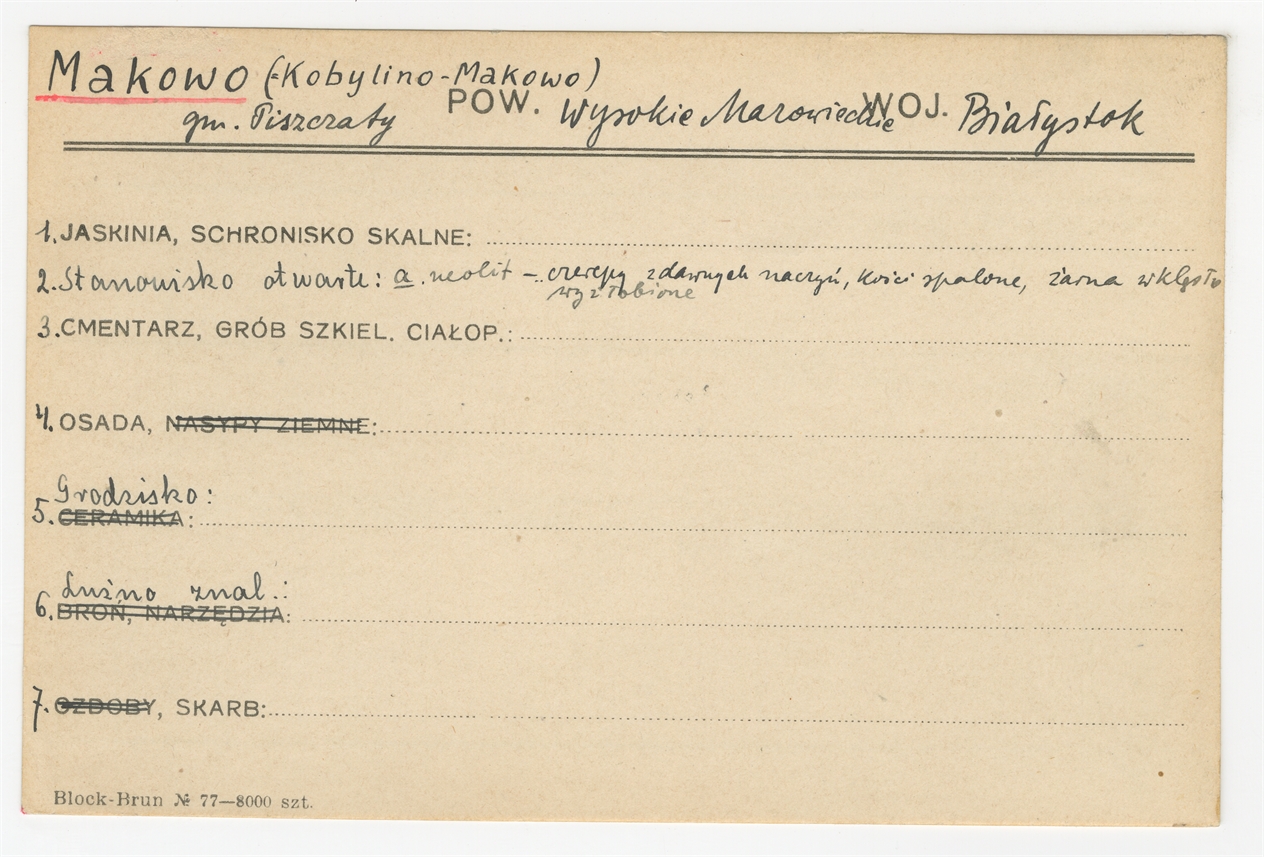 Makowo (=Kobylino-Makowo)
gm. Piszczaty POW. Wysokie Mazowieckie WOJ. Białystok
1. JASKINIA, SCHRONISKO SKALNE:
2. Stanowisko otwarte: a. neolit – czerepy z dawnych naczyń, kości spalone, żarna wklęsło
wyżłobione
3. CMENTARZ, GRÓB SZKIEL. CIAŁOP.:
4. OSADA, NASYPY ZIEMNE:
Grodzisko:
5. CERAMIKA:
Luźno znal.:
6. BROŃ, NARZĘDZIA:
7. OZDOBY, SKARB:
Block-Brun № 77—8000 szt.